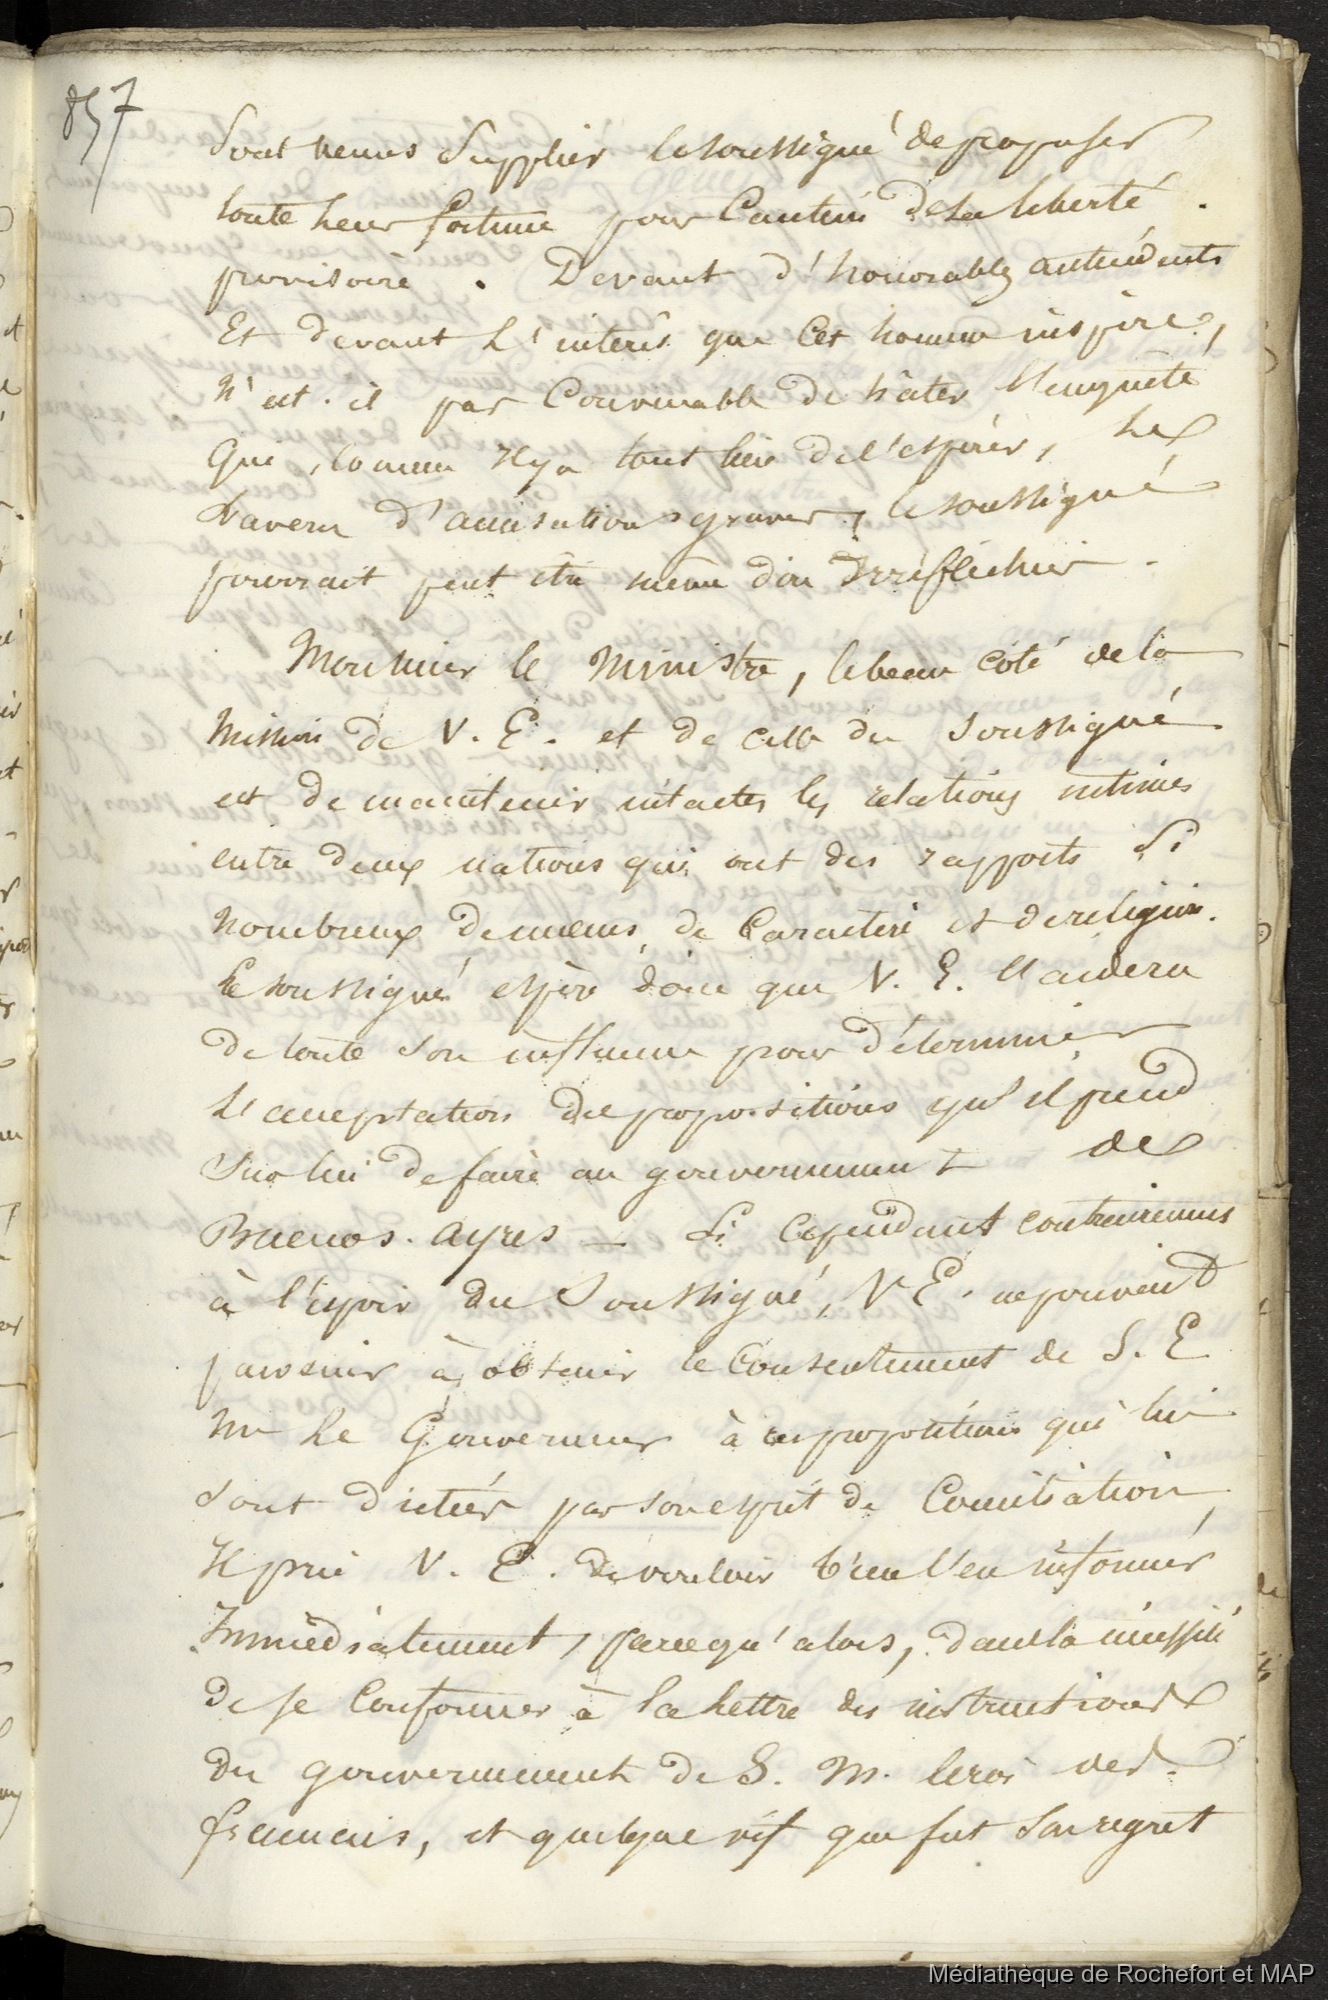 857
Sont venus Supplier le soussigné de proposer
toute leur fortune pour Caution de la liberté
provisoire . Devant d'honorables antécédents
Et devant L'intérêt que Cet homme inspire,
N'est-il pas Convenable de hâter l'enquête
Que, comme Il y a tout lieu de l'espérer, le
lavera d'accusations graves, le soussigné
pourrait peut être même dire Irréfléchies .
Monsieur le Ministre, le beau côté de la
Mission de V. E. et de celle du Soussigné
est de maintenir intactes les relations intimes
entre deux nations qui ont des rapports Si
Nombreux de mœurs, de Caractère et de religion.
Le soussigné espère donc que V. E. l'aidera
de toute son influence pour déterminer
L'acceptation des propositions qu'il prend
Sur lui de faire au gouvernement de
Buenos-Ayres — Si Cependant contrairement
à l'espoir du Soussigné, V. E. ne pouvait
parvenir à obtenir le Consentement de S. E
Mr Le Gouverneur à ces propositions qui lui
Sont dictées par son esprit de Conciliation,
Il prie V. E. de vouloir bien l'en informer
Immédiatement, parcequ'alors, dans la nécessité
de se Conformer à la Lettre des instructions
du gouvernement de S. M. le roi des
français, et quelque vif que fut Son regret
Médiathèque de Rochefort et MAP